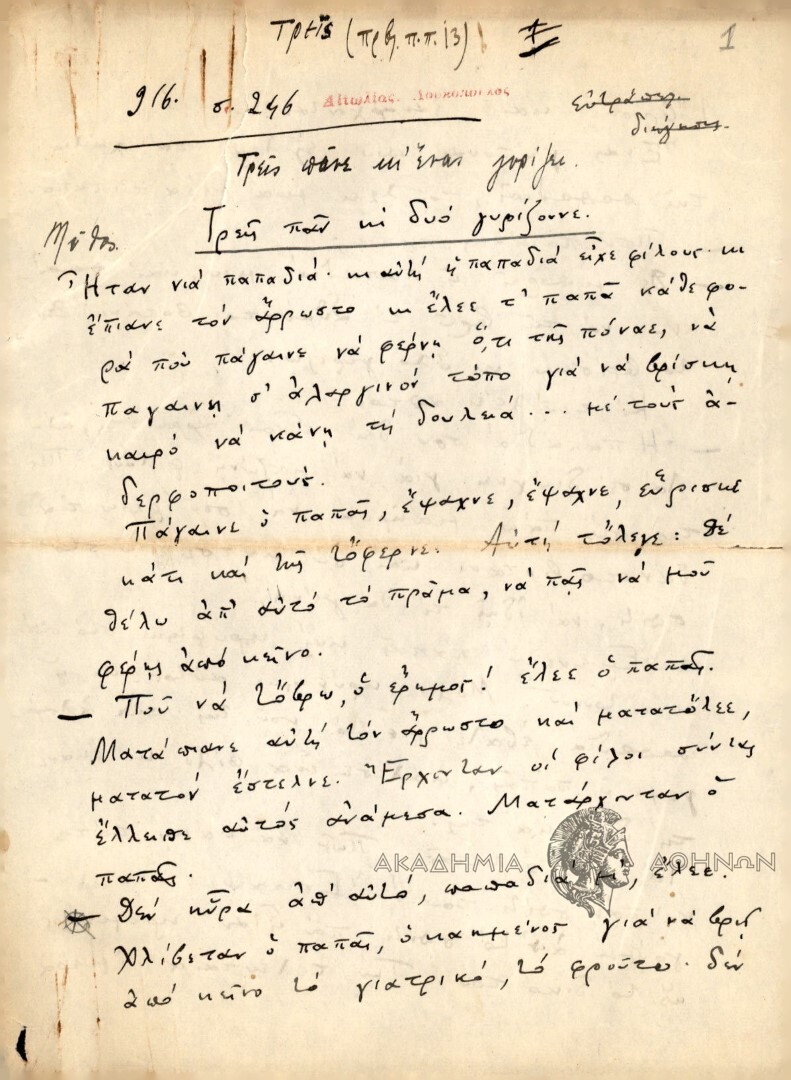 Τρεῖς (πρβ. π.π. 13) 1
916. σ. 246 Αἰτωλίας. Λουκόπουλος
εὐτράπελ.
διήγησις.
Τρεῖς πᾶνε κι' ἕνας γυρίζει.
Μῦθος.
Τρεῖς πᾶν κι δυό γυρίζουνε.
Ἦταν νιά παπαδιά· κι αὐτή ἡ παπαδιά εἶχε φίλους· κι
ἔπιανε τόν ἄρρωστο κι ἔλεε τ' παπᾶ κάθε φο-
ρά πού πάγαινε νά φέρνη ὅ,τι τῆς πόναε, νά
παγαινη σ' ἀλαργινόν τόπο γιά νά βρίσκη
καιρό νά κάνη τή δουλειά... μέ τούς ἀ-
δερφοποιτούς.
Πάγαινε ὁ παπᾶς, ἔψαχνε, ἔψαχνε, εὕρισκε
κάτι καί τῆς τὄφερνε. Αὐτή τὄλεγε: Δέ
θέλω ἀπ' αὐτό τό πρᾶμα, νά πᾶς νά μοῦ
φέρῃς ἀπό κεῖνο.
— Ποῦ νά τὄβρω, ὁ ἔρημος! ἔλεε ὁ παπᾶς.
Ματάπιανε αὐτή τόν ἄρρωστο καί ματατὄλεε,
ματατόν ἔστελνε. Ἔρχονταν οἱ φίλοι
ἔλλειπε αὐτός ἀνάμεσα. Ματάρχονταν ὁ
παπᾶς.
ΑΚΑΔΗΜΙΑ ΑΘΗΝΩΝ
— Δέν ηὗρα ἀπ' αὐτό, παπαδιά μ', ἔλεε.
Χλίβεταν ὁ παπᾶς, ὁ καημένος γιά νά βρῇ
ἀπό κεῖνο τό γιατρικό, τό φροῦτο· δέν